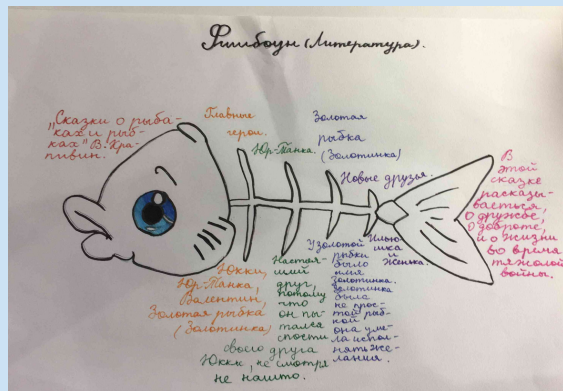 Фишбоун (Литература).
„Сказки о рыба-
ках и рыб-
ках" В. Кра-
пивин.
Главные
герои.
Юр-Танка.
Золотая
рыбка
(Золотинка)
Новые друзья.
В
этой
сказке
расказы-
ваеться,
о дружбе,
о доброте,
и о жизни
во время
тяжолой
войны.
Юкки,
Юр-Танка,
Валентин,
Золотая рыбка
(Золотинка)
Настоя-
ший
друг,
потому
что
он пы-
тался
спости
своего друга
Юкки, не смотря
не нашто.
У золотой
рыбки
было
имя
Золотинка.
Золотинка
была
не прос-
той рыб-
кой
она уме-
ла испол-
нять же-
лания.
Илью-
шка
и
Женька.